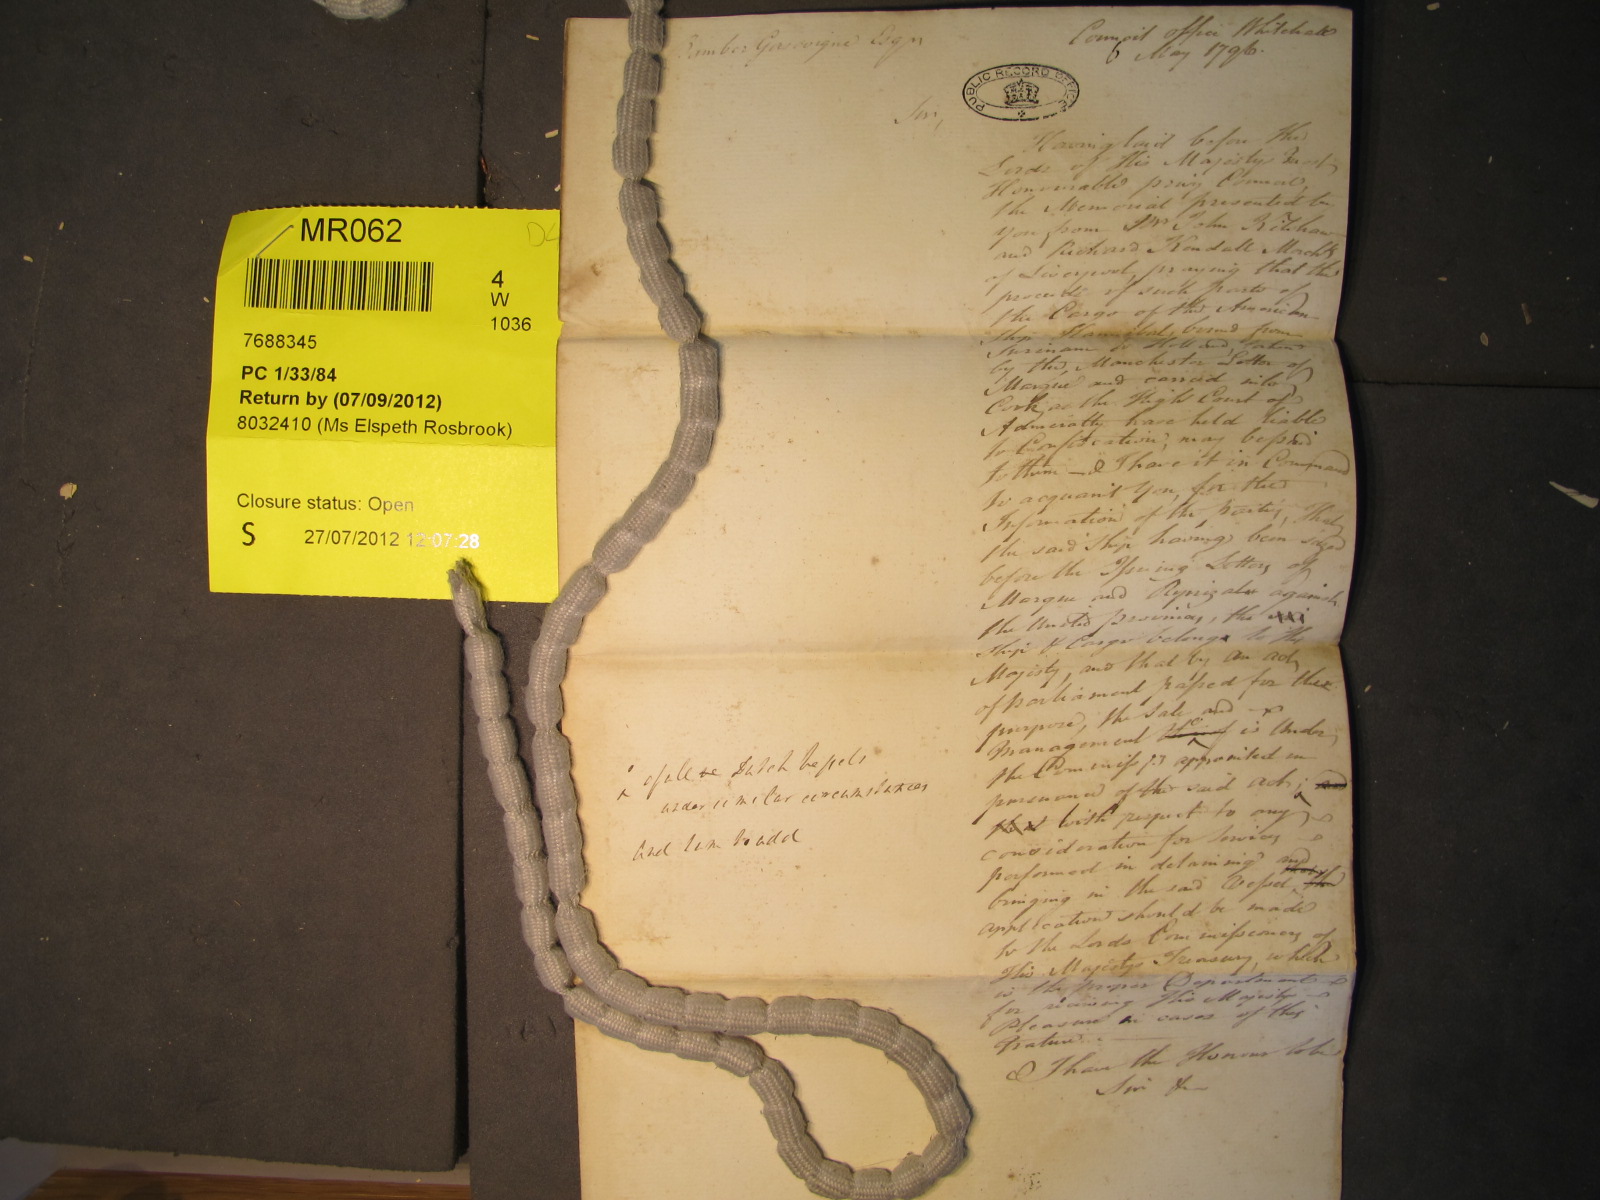 MR062
4
W
1036
7688345
PC 1/33/84
Return by (07/09/2012)
8032410 (Ms Elspeth Rosbrook)
Closure status: Open
S 27/07/2012 12:07:28
Bamber Gascoigne Esqr
Council office Whitehall
6 May 1796.
PUBLIC RECORD OFFICE
Sir,
Having laid before the
Lords of His Majesty's most
Honourable privy Council,
the Memorial presented by
you, from Mr John
and Richard Kendall Merchts
of Liverpool, praying that the
proceeds of such parts of
the Cargo of the American
Ship Hannibal, bound from
Surinam to Holland, taken
by the Manchester Letter of
Marque and carried into
Cork, as the High Court of
Admiralty have held liable
to Confiscation, may be paid
to them — I have it in Command
to acquaint you for the
Information of the parties, that
the said Ship having been seized
before the Issuing Letters of
Marque and Reprizals against
the United provinces, the
Ship & Cargo belongs to His
Majesty, and that by an act
of Parliament passed for the
purpose, the Sale and
Management is under
the Commissrs appointed in
pursuance of the said act; and
that with respect to any
consideration for services
performed in detaining and
bringing in the said Vessel,
application should be made
to the Lords Commissioners of
His Majesty's Treasury, which
is the proper Department
for receiving His Majesty's
Pleasure in cases of this
Nature.
I have the Honour to be
Sir &c
of all Dutch Vessels
under similar circumstances
and I am to add